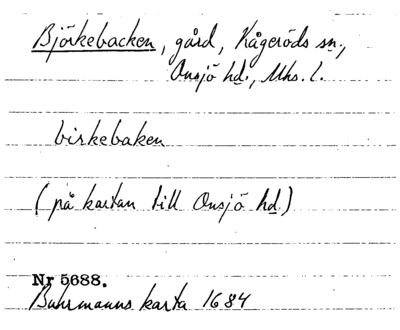 Björkebacken, gård, Kågeröds sn.,
Onsjö hd., Mhs. l.
birkebaken
(på kartan till Onsjö hd)
Nr 5688.
Buhrmanns karta 1684